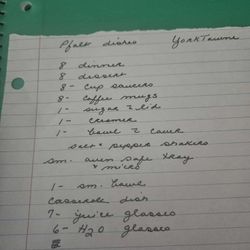 Pfalt dishes YorkTowne
8 dinner
8 dessert
8 - cup saucers
8 - coffee mugs
1 - sugar & lid
1 - creamer
1 - bowl & cover
salt & pepper shakers
sm. oven safe tray
& micro
1 - sm. bowl
Casserole dish
7 - juice glasses
6 - H2O glasses